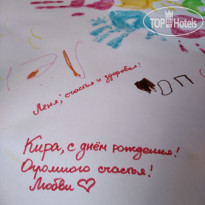 TOP Hotels
Лёня, счастья и здоровья!
ОП
Кира, с днём рождения!
Огромного счастья!
Любви ♡